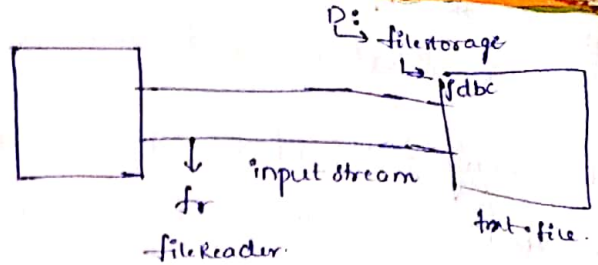 D:
↳ filestorage
↳ jdbc
input stream
fr
fileReader.